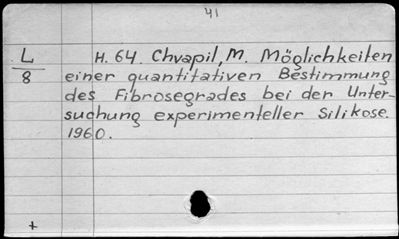 41
L
8
H. 64. Chvapil, M. Möglichkeiten
einer quantitativen Bestimmung
des Fibrosegrades bei der Unter-
suchung experimenteller Silikose.
1960.
+